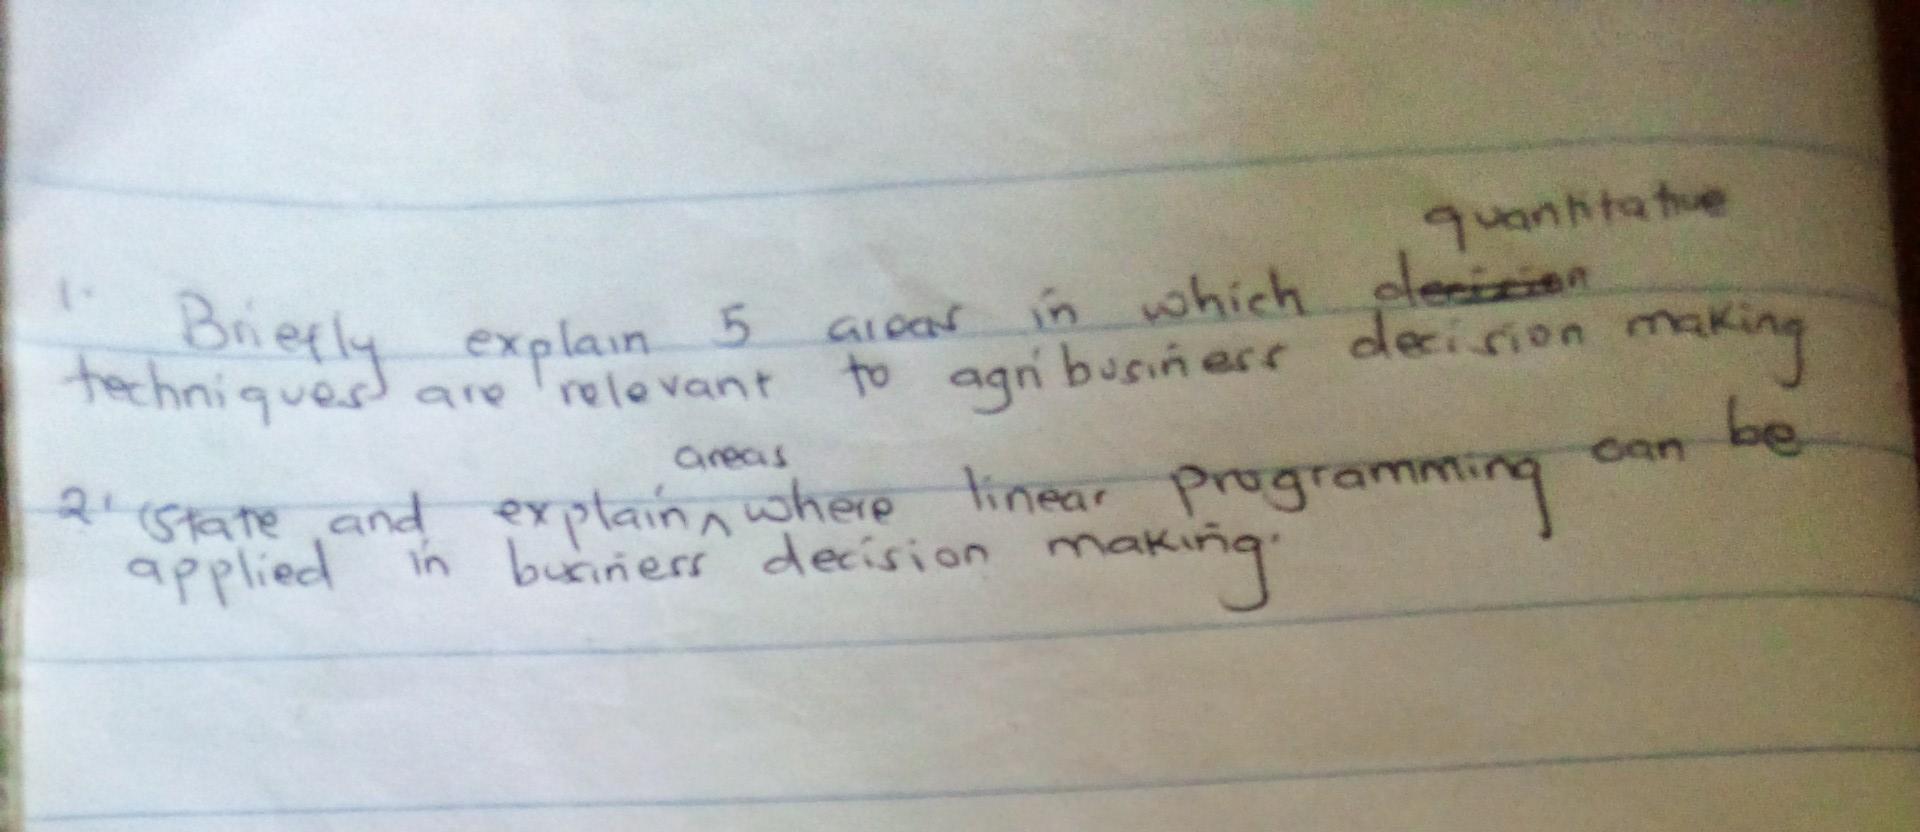 quantitative
1. Briefly explain 5 areas in which decision
techniques are relevant to agribusiness decision making
areas
2. State and explain ^ where linear programming can be
applied in business decision making.